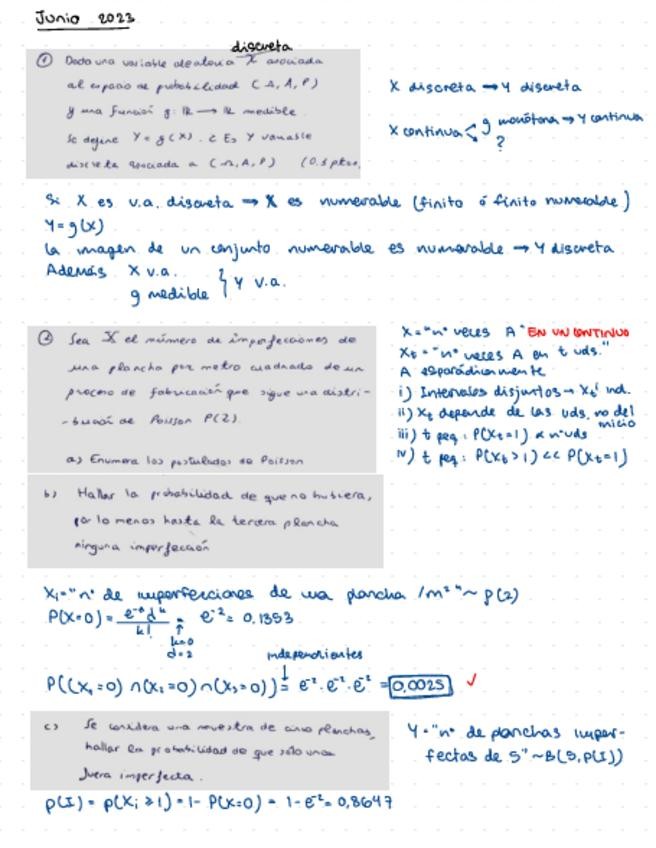 Junio 2023
discreta
① Dada una variable aleatoria X asociada
al espacio de probabilidad (Ω, A, P)
y una función g: ℝ → ℝ medible.
Se define Y = g(X). ¿Es Y variable
discreta asociada a (Ω, A, P) (0.5 ptos)
X discreta → Y discreta
X continua < g monótona → Y continua
?
Si X es v.a. discreta → X es numerable (finito ó finito numerable)
Y = g(X)
La imagen de un conjunto numerable es numerable → Y discreta
Además X v.a.
g medible } Y v.a.
② Sea X el número de imperfecciones de
una plancha por metro cuadrado de un
proceso de fabricación que sigue una distri-
-bución de Poisson P(2).
a) Enumera los postulados de Poisson
X = "nº veces A" EN UN CONTINUO
Xt = "nº veces A en t uds."
A esporádicamente
i) Intervalos disjuntos → Xt' ind.
ii) Xt depende de las uds, no del
inicio
iii) t peq: P(Xt=1) α nº uds
iv) t peq: P(Xt>1) << P(Xt=1)
b) Hallar la probabilidad de que no hubiera,
por lo menos hasta la tercera plancha
ninguna imperfección
Xi = "nº de imperfecciones de una plancha /m²" ~ P(2)
P(X=0) = e^-λ λ^k / k! = e^-2 = 0,1353
k=0
λ=2
independientes
P((X₁=0) ∩ (X₂=0) ∩ (X₃=0)) = e^-2 · e^-2 · e^-2 = 0,0025 ✓
c) Se considera una muestra de cinco planchas,
hallar la probabilidad de que sólo una
fuera imperfecta.
Y = "nº de planchas imper-
fectas de 5" ~ B(5, P(I))
P(I) = P(Xi ≥ 1) = 1 - P(X=0) = 1 - e^-2 = 0,8647